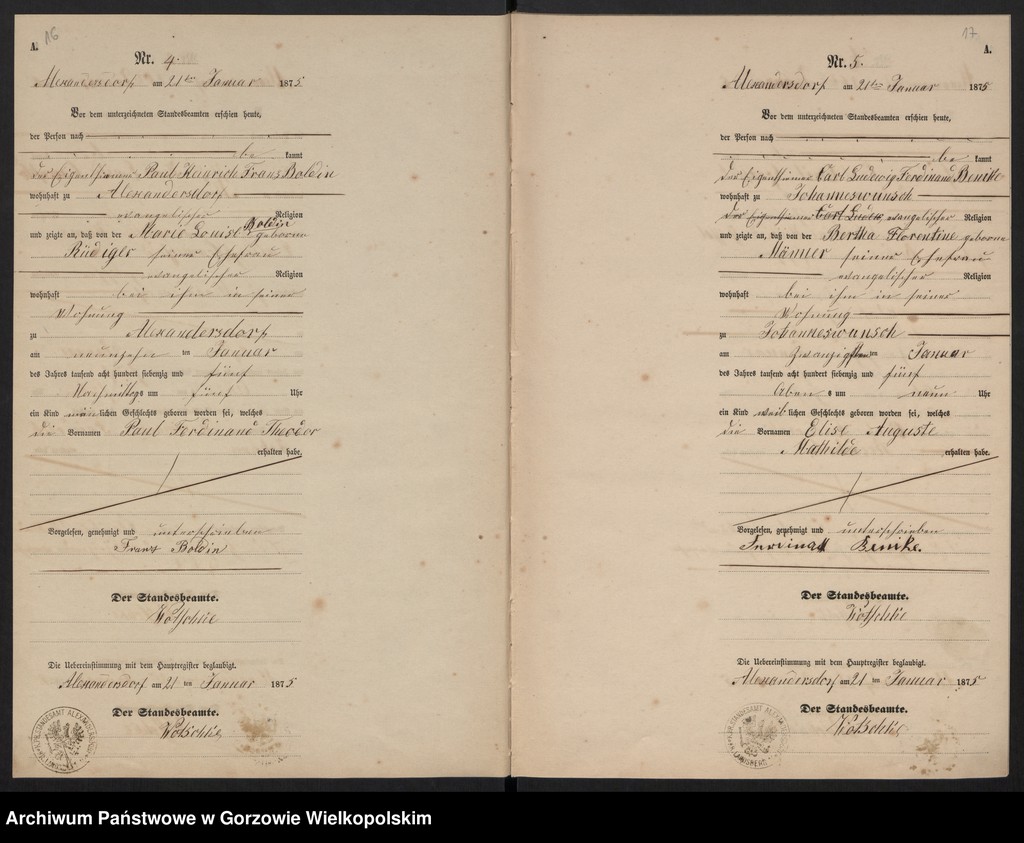 16
A.
Nr. 4.
Alexandersdorf am 21ten Januar 1875
Vor dem unterzeichneten Standesbeamten erschien heute,
der Person nach
be kannt
der Eigenthümer Paul Heinrich Franz Boldin
wohnhaft zu Alexandersdorf
evangelischer Religion
und zeigte an, daß von der Marie Louise Boldin geborene
Rüdiger seiner Ehefrau
evangelischer Religion
wohnhaft bei ihm in seiner
Wohnung
zu Alexandersdorf
am neunzehn ten Januar
des Jahres tausend acht hundert siebenzig und fünf
Nachmittags um fünf Uhr
ein Kind män lichen Geschlechts geboren worden sei, welches
die Vornamen Paul Ferdinand Theodor
erhalten habe.
Vorgelesen, genehmigt und unterschrieben
Franz Boldin
Der Standesbeamte.
Die Uebereinstimmung mit dem Hauptregister beglaubigt.
Alexandersdorf am 21 ten Januar 1875
Der Standesbeamte.
17
A.
Nr. 5.
Alexandersdorf am 21ten Januar 1875
Vor dem unterzeichneten Standesbeamten erschien heute,
der Person nach
be kannt
der Eigenthümer Carl Ludewig Ferdinand Benike
wohnhaft zu Johanneswunsch
der Eigenthümer Carl Ludew evangelischer Religion
und zeigte an, daß von der Bertha Florentine geborene
Männer seiner Ehefrau
evangelischer Religion
wohnhaft bei ihm in seiner
Wohnung
zu Johanneswunsch
am Zwanzigsten ten Januar
des Jahres tausend acht hundert siebenzig und fünf
Aben s um neun Uhr
ein Kind weib lichen Geschlechts geboren worden sei, welches
die Vornamen Elise Auguste
Mathilde erhalten habe.
Vorgelesen, genehmigt und unterschrieben
Benike.
Der Standesbeamte.
Die Uebereinstimmung mit dem Hauptregister beglaubigt.
Alexandersdorf am 21 ten Januar 1875
Der Standesbeamte.
Archiwum Państwowe w Gorzowie Wielkopolskim